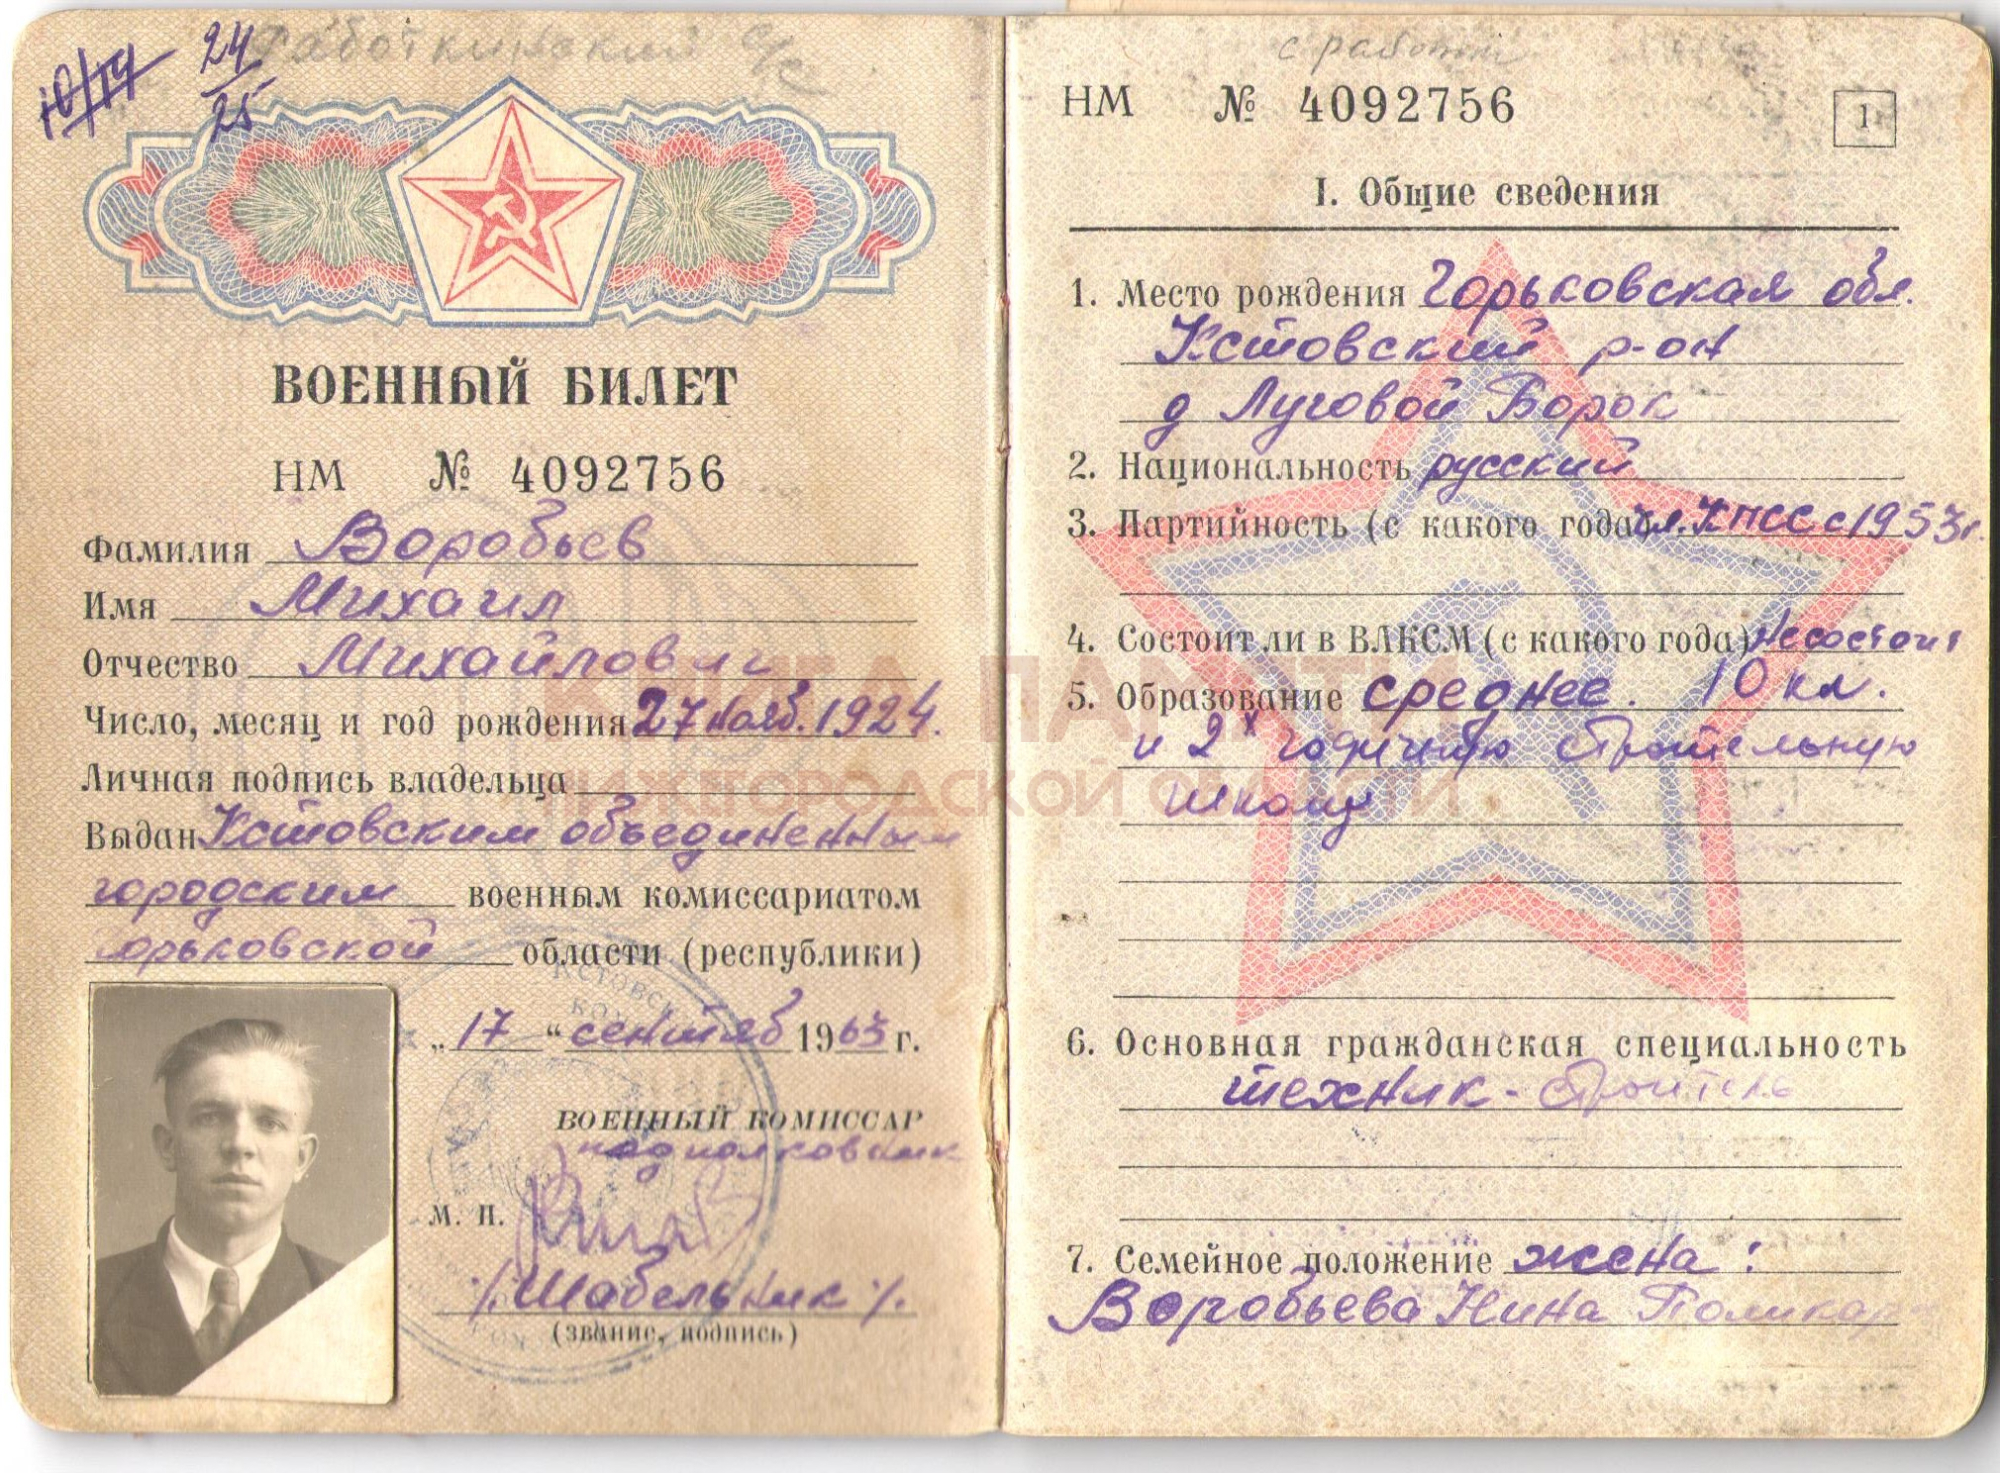 10/14
24
25
Работкинский с/с
ВОЕННЫЙ БИЛЕТ
НМ № 4092756
Фамилия Воробьев
Имя Михаил
Отчество Михайлович
Число, месяц и год рождения 27 нояб. 1924.
Личная подпись владельца
Выдан Кстовским объединенным
городским военным комиссариатом
Горьковской области (республики)
„17“ сентяб 1963 г.
ВОЕННЫЙ КОМИССАР
подполковник
М. П.
/.Шабельник/.
(звание, подпись)
с работки
НМ № 4092756
1
I. Общие сведения
1. Место рождения Горьковская обл.
Кстовский р-он
д Луговой Борок
2. Национальность русский
3. Партийность (с какого года) чл. КПСС с 1953г.
4. Состоит ли в ВЛКСМ (с какого года) не состоит
5. Образование среднее. 10 кл.
и 2х годичную строительную
школу
6. Основная гражданская специальность
техник-строитель
7. Семейное положение жена:
Воробьева Нина Поликар
КНИГА ПАМЯТИ
НИЖЕГОРОДСКОЙ ОБЛАСТИ